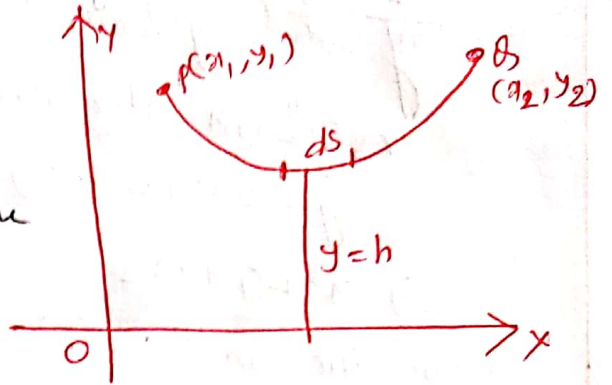 Y
P(x₁, y₁)
Q
(x₂, y₂)
ds
y = h
O
X